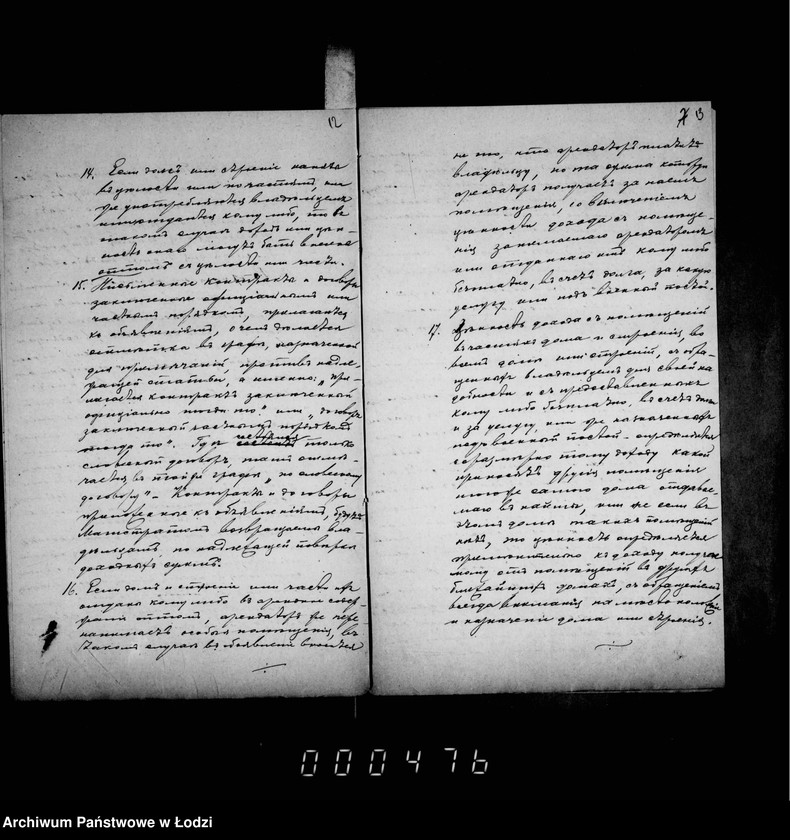 12
14. Если домъ или строеніе нанятъ
въ цѣлости или по частямъ, или
же употребляется владѣльцемъ
кому либо, то въ
такомъ случаѣ доходъ или цѣн-
ность онаго могутъ быть
съ цѣлости или части.
15. Письменные контракты и договоры
заключенные оффиціальнымъ или
частнымъ порядкомъ, прилагаются
къ объявленіямъ, о чемъ дѣлается
отмѣтка въ графѣ, назначенной
для примѣчаній, противъ надле-
жащей статьи, а именно: „при-
лагается контрактъ заключенный
оффиціально тогда то" или „договоръ
заключенный частнымъ порядкомъ
тогда то". Гдѣ только
словесный договоръ, тамъ отмѣ-
чается въ той же графѣ „по словесному
договору". Контракты и договоры
приложенные къ объявленіямъ, будутъ
Магистратомъ возвращены вла-
дѣльцамъ, по надлежащей повѣркѣ
доходныхъ суммъ.
16. Если домъ и строеніе или части ихъ
отданы кому либо въ аренду
арендаторъ же пере-
нанимаетъ особыя помѣщенія, въ
такомъ случаѣ въ объявленіи вносится
13
не то, что арендаторъ платитъ
владѣльцу, но та сумма которую
арендаторъ получаетъ за наемъ
помѣщенія, со включеніемъ
цѣнности дохода съ помѣще-
нія занимаемаго арендаторомъ
или отданнаго имъ кому либо
безплатно, въ счетъ долга, за какую
услугу или подъ военный постой.
17. Цѣнность дохода съ помѣщеній
въ частяхъ дома и строенія, во
всемъ домѣ или строеніи, обра-
щенныхъ владѣльцемъ для своей на-
добности и съ предоставленныхъ
кому либо безплатно, въ счетъ долга
и за услугу, или же назначенныхъ
подъ военный постой - опредѣляется
соразмѣрно тому доходу какой
приносятъ другія помѣщенія
того же самаго дома отдавае-
мыя въ наймы, или же если въ
этомъ домѣ такихъ помѣщеній
нѣтъ, то цѣнность опредѣляется
примѣнительно къ доходу получае-
мому отъ помѣщеній въ другихъ
ближайшихъ домахъ, съ обращеніемъ
всегда вниманія на мѣсто
и назначеніе дома или строенія.
000476
Archiwum Państwowe w Łodzi